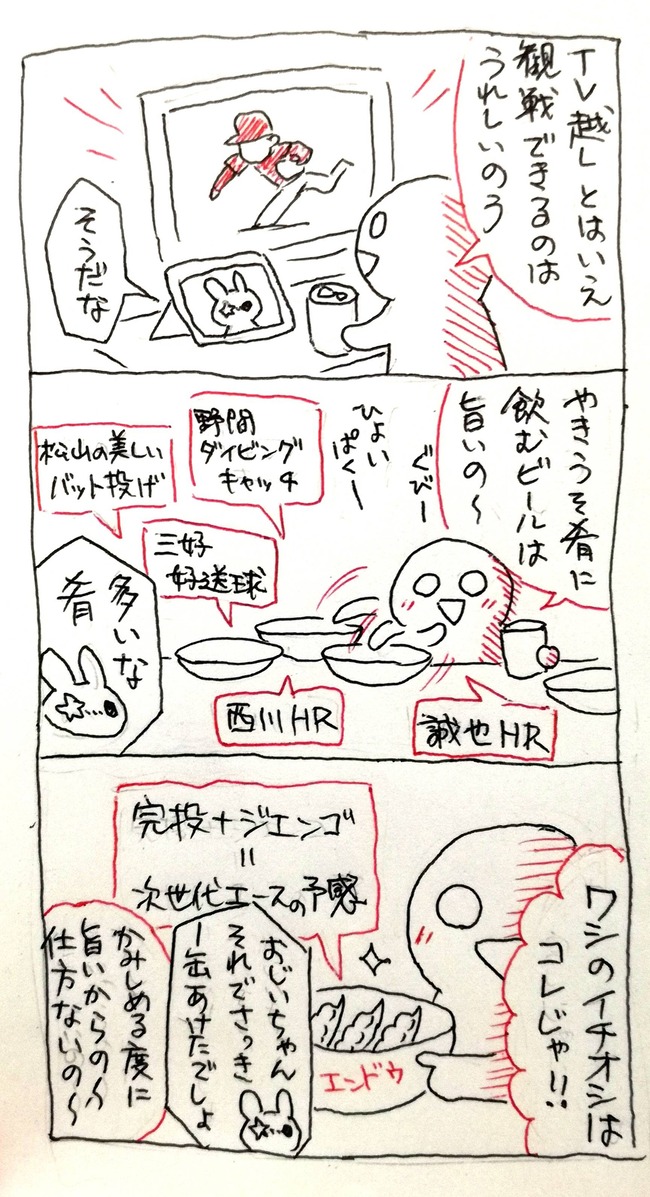 TV越しとはいえ
観戦できるのは
うれしいのう
そうだな
やきうを肴に
飲むビールは
旨いの〜
ぐびー
ひょい
ぱくー
野間
ダイビング
キャッチ
松山の美しい
バット投げ
三好
好送球
西川HR
誠也HR
多いな
肴
ワシのイチオシは
コレじゃ!!
完投+ジエンゴ
=
次世代エースの予感
エンドウ
おじいちゃん
それでさっき
1缶あけたでしょ
かみしめる度に
旨いからの〜
仕方ないの〜